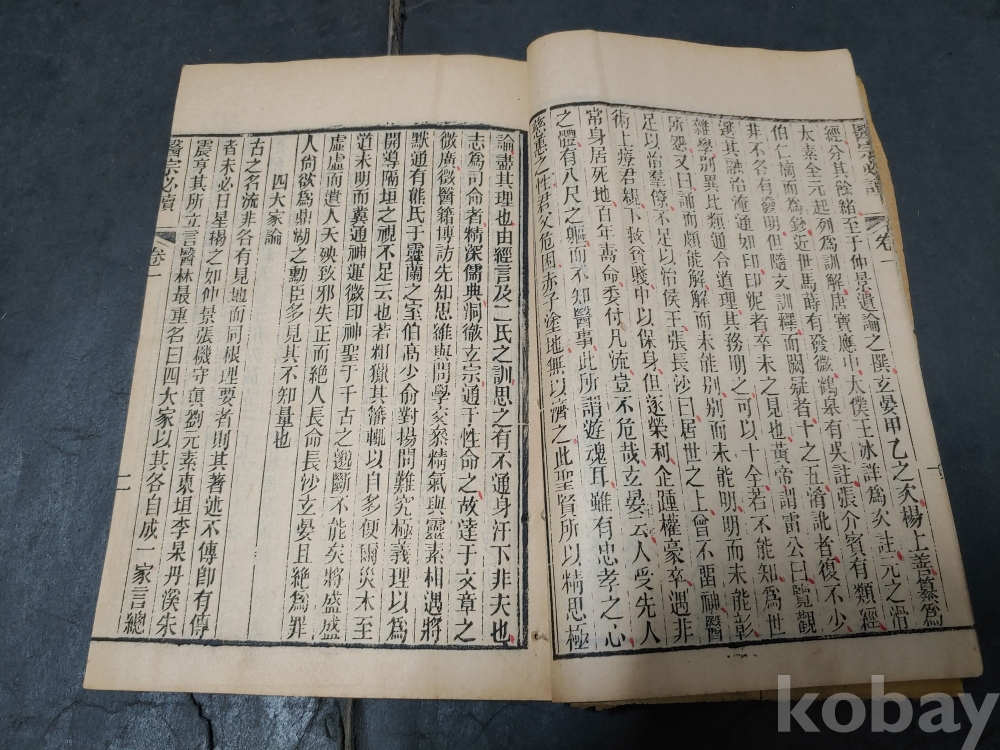 醫宗必讀 卷一 一
經分其餘緒至于仲景遺論之撰玄晏甲乙之次楊上善纂為
太素全元起列為訓解唐寶應中太僕王冰詳為次註元之滑
伯仁摘而為鈔近世馬蒔有發微鶴皋有吳註張介賓有類經
非不各有發明但隨文訓釋而闕疑者十之五淆訛者復不少
選其融洽淹通如印印泥者卒未之見也黃帝謂雷公曰覽觀
雜學別異比類通合道理其務明之可以十全若不能知為世
所怨又曰誦而頗能解解而未能別別而未能明明而未能彰
足以治羣僚不足以治侯王張長沙曰居世之士曾不畱神醫
術上療君親下救貧賤中以保身但逐榮利企踵權豪卒遇非
常身居死地百年壽命委付凡流豈不危哉玄晏云人受先人
之體有八尺之軀而不知醫事此所謂遊魂耳雖有忠孝之心
慈惠之性君父危困赤子塗地無以濟之此聖賢所以精思極
論盡其理也由經言及二氏之訓思之有不通身汗下非夫也
志為司命者精深儒典洞徹玄宗通于性命之故達于文章之
微廣徵醫籍博訪先知思維與問學交叅精氣與靈素相遇將
默通有熊氏于靈蘭之室伯高少俞對揚問難究極義理以為
開導隔垣之視不足云也若粗獵其藩輒以自多便爾災木至
道未明而冀通神運微印神聖于千古之邈斷不能矣將盛盛
虛虛而遺人夭殃致邪失正而絕人長命長沙玄晏且絕為罪
人尚欲為鼎湖之勳臣多見其不知量也
四大家論
古之名流非各有見地而同根理要者則其著述不傳即有傳
者未必日星揭之如仲景張機守真劉元素東垣李杲丹溪朱
震亨其所立言醫林最重名曰四大家以其各自成一家言總
醫宗必讀 卷一 二
kobay